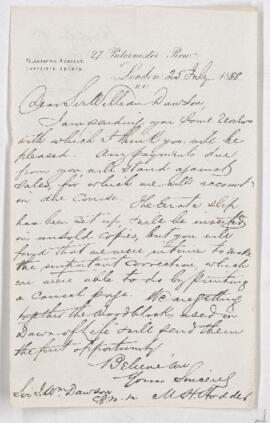 27, Paternoster Row
TELEGRAPHIC ADDRESS,
London 25 July 1888
E.C.
Dear Sir William Dawson,
I am sending you some Reviews
with which I think you will be
pleased. Any payments due
from you will stand against
sales, for which we will account
in due course. The Errata slip
has been set up & will be inserted
in unsold copies, but you will
find that we were in time to make
the important correction which
we were able to do by printing
a cancel page. We are getting
together the Woodblocks used in
Dawn of Life & will send them
the first opportunity
Believe me
Yours Sincerely
Sir J. Wm Dawson
M. H. Hodder